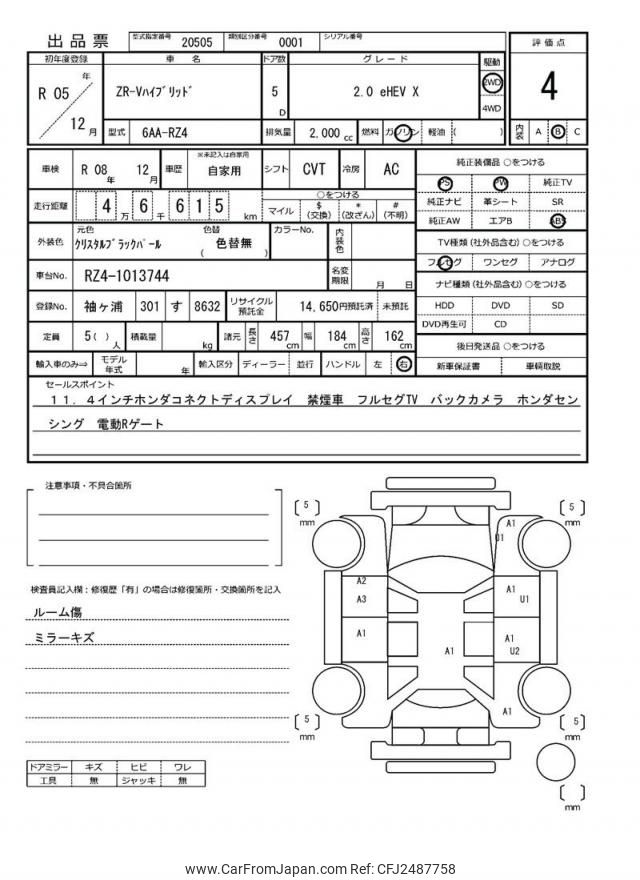 出品票
型式指定番号 20505 類別区分番号 0001 シリアル番号
初年度登録 車名 ドア数 グレード 駆動 評価点
R 05 年 12 月
ZR-Vハイブリッド 5 D 2.0 eHEV X 2WD 4WD 4
型式 6AA-RZ4 排気量 2,000 cc 燃料 ガソリン 軽油 ( ) 内装 A B C
車検 R 08 年 12 月 車歴 ※未記入は自家用 自家用 シフト CVT 冷房 AC
走行距離 4 万 6 千 6 1 5 km
○をつける
マイル $ (交換) * (改ざん) # (不明)
外装色 元色 クリスタルブラックパール 色替 ( 色替無 ) カラーNo. 内装色
車台No. RZ4-1013744 名変期限 月 日
登録No. 袖ヶ浦 301 す 8632 リサイクル預託金 14,650円預託済 未預託
定員 5 ( ) 人 積載量 kg 諸元 長さ 457 cm 幅 184 cm 高さ 162 cm
輸入車のみ⇒ モデル年式 年 輸入区分 ディーラー 並行 ハンドル 左 右
純正装備品 ○をつける
PS PW 純正TV
純正ナビ 革シート SR
純正AW エアB ABS
TV種類 (社外品含む) ○をつける
フルセグ ワンセグ アナログ
ナビ種類 (社外品含む) ○をつける
HDD DVD SD
DVD再生可 CD
後日発送品 ○をつける
新車保証書 車輌取説
セールスポイント
11.4インチホンダコネクトディスプレイ 禁煙車 フルセグTV バックカメラ ホンダセン
シング 電動Rゲート
注意事項・不具合箇所
検査員記入欄:修復歴「有」の場合は修復箇所・交換箇所を記入
ルーム傷
ミラーキズ
ドアミラー キズ ヒビ ワレ
工具 無 ジャッキ 無
5 mm
5 mm
A1
U1
A2
A3
A1
U1
A1
A1
A1
U2
A1
5 mm
5 mm
mm
www.CarFromJapan.com Ref: CFJ2487758